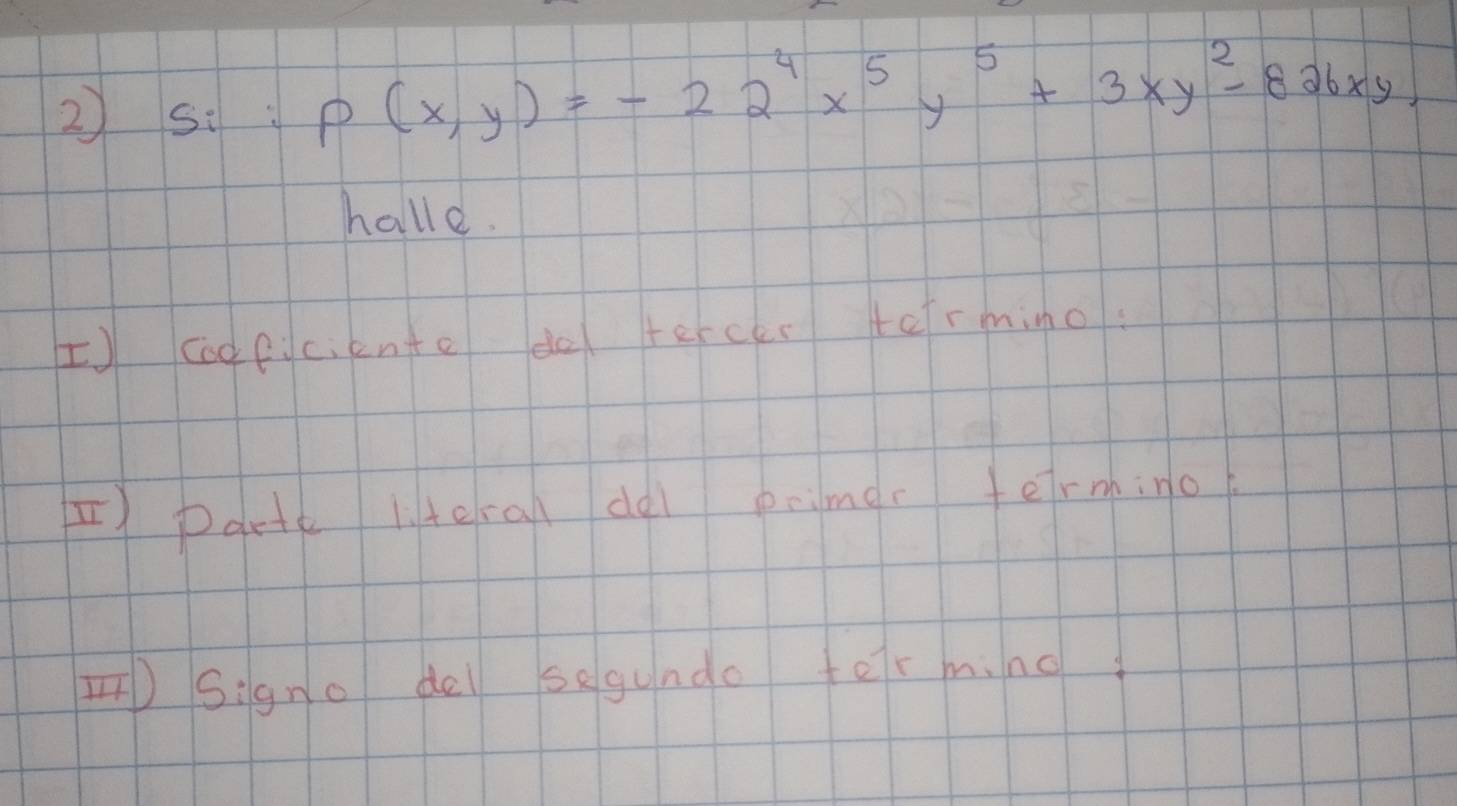 2) Si : P(x,y) = - 2 2⁴ x⁵ y⁵ + 3xy² - 8 26xy,
halle.
I) coeficiente del tercer término :
II) Parte literal del primer término :
III) Signo del segundo término :